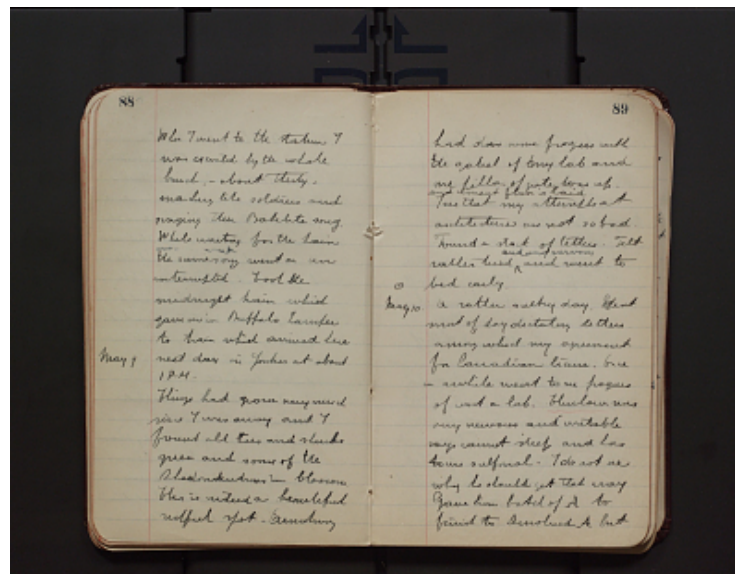 88
When I went to the station I
was escorted by the whole
bunch, - about thirty -
marching like soldiers and
singing their Bakelite song.
While waiting for the train
the same song went on un
interrupted. Took the
midnight train which
gave me in Buffalo
to train which arrived here
May 9
next day in Yonkers at about
1 P.M.
Things had grown very much
since I was away and I
found all trees and shrubs
green and some of the
Rhododendrons in blossom
This is indeed a beautiful
restful spot.
89
had done some progress with
the gable of tiny lab and
one pillar of gate was up.
and cement floor is laid
I see that my attempts at
architecture are not so bad.
Found a stack of letters. Felt
and nervous
rather tired, and went to
bed early.
May 10.
A rather sultry day. Spent
most of day dictating letters
among which my agreement
for Canadian license. Once
- awhile went to see progress
of work a lab. Thurlow was
very nervous and irritable
says cannot sleep and has
to use sulfonal - I do not see
why he should get that way
Gave him batch of A to
find to dissolved A but